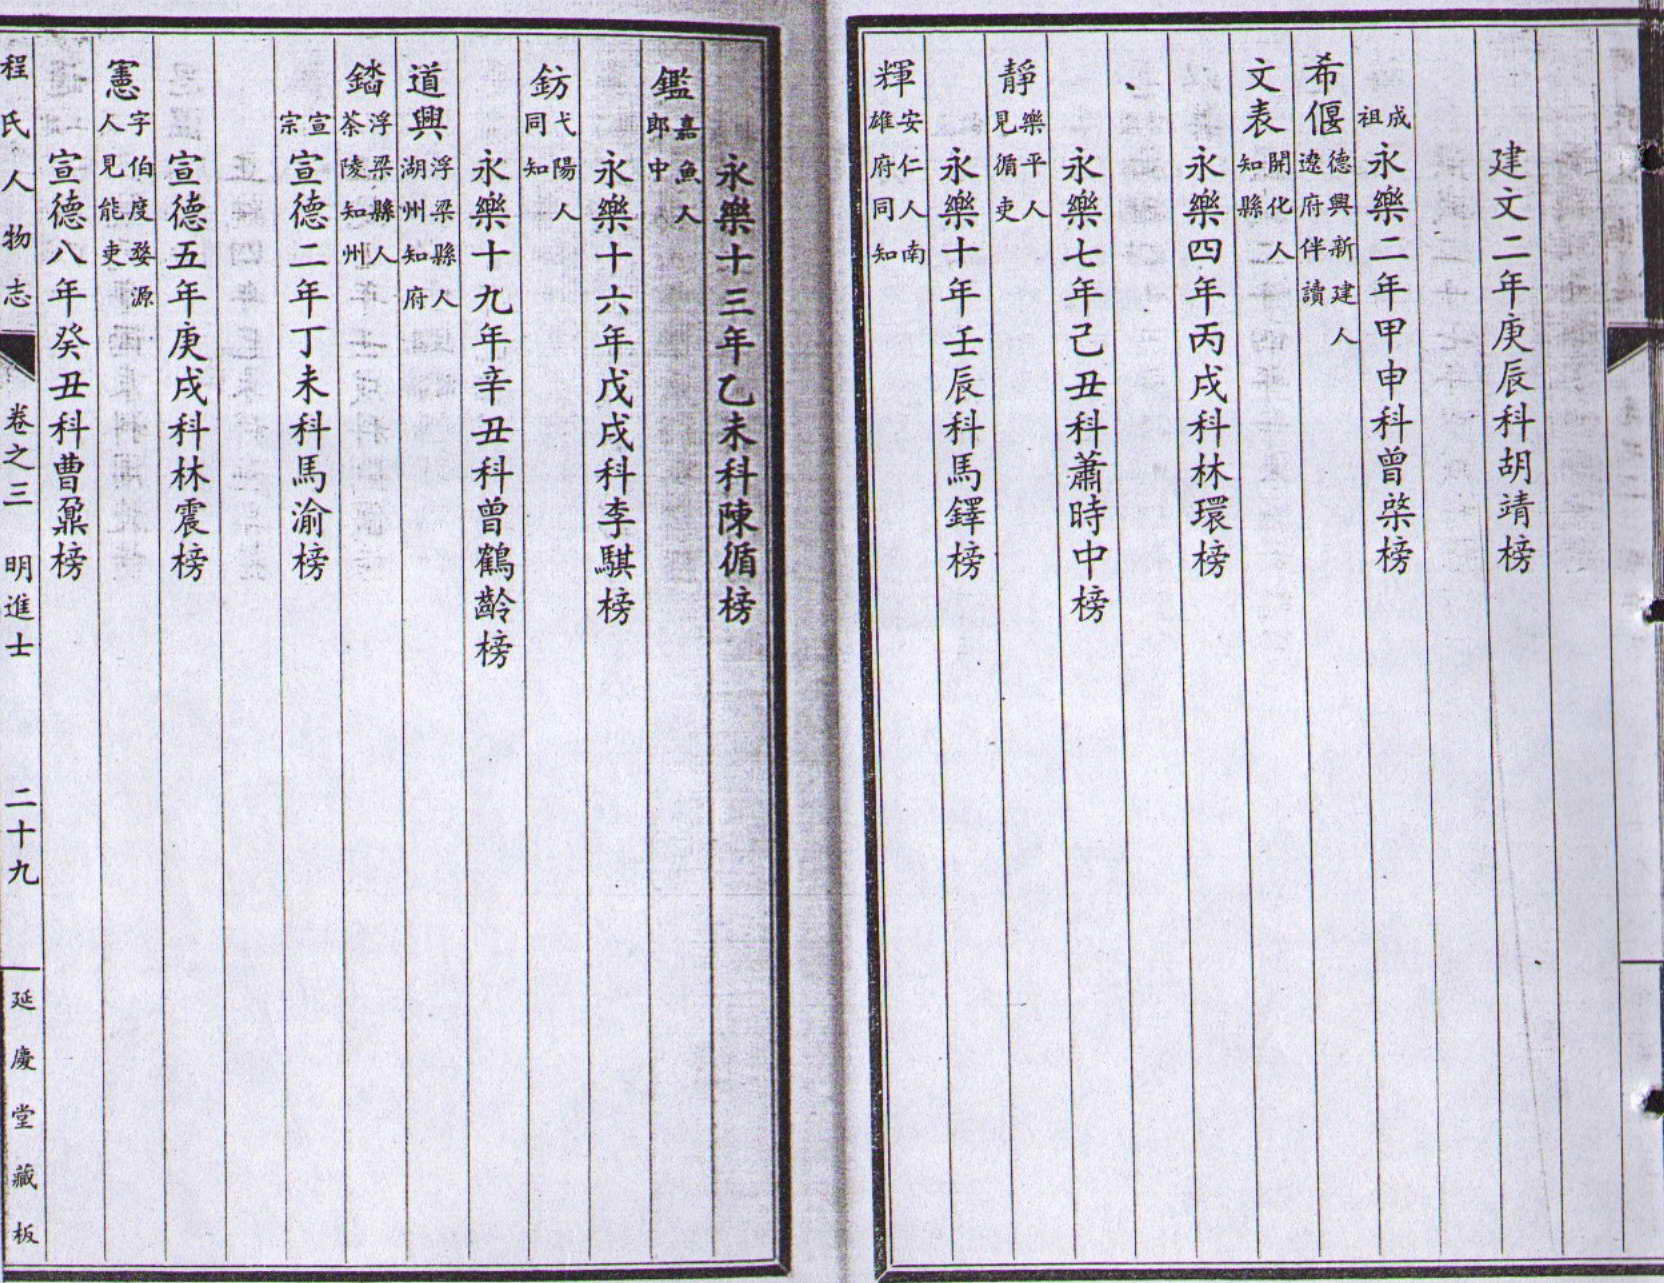 建文二年庚辰科胡靖榜
成祖永樂二年甲申科曾棨榜
希偃德興新建人遼府伴讀
文表開化人知縣
永樂四年丙戌科林環榜
永樂七年己丑科蕭時中榜
靜樂平人見循吏
永樂十年壬辰科馬鐸榜
輝安仁人南雄府同知
永樂十三年乙未科陳循榜
鑑嘉魚人郎中
永樂十六年戊戌科李騏榜
鈁弋陽人同知
永樂十九年辛丑科曾鶴齡榜
道興浮梁縣人湖州知府
鐺浮梁縣人茶陵知州
宣宗宣德二年丁未科馬渝榜
宣德五年庚戌科林震榜
憲字伯度婺源人見能吏
宣德八年癸丑科曹鼐榜
程氏人物志 卷之三 明進士 二十九 延慶堂藏板